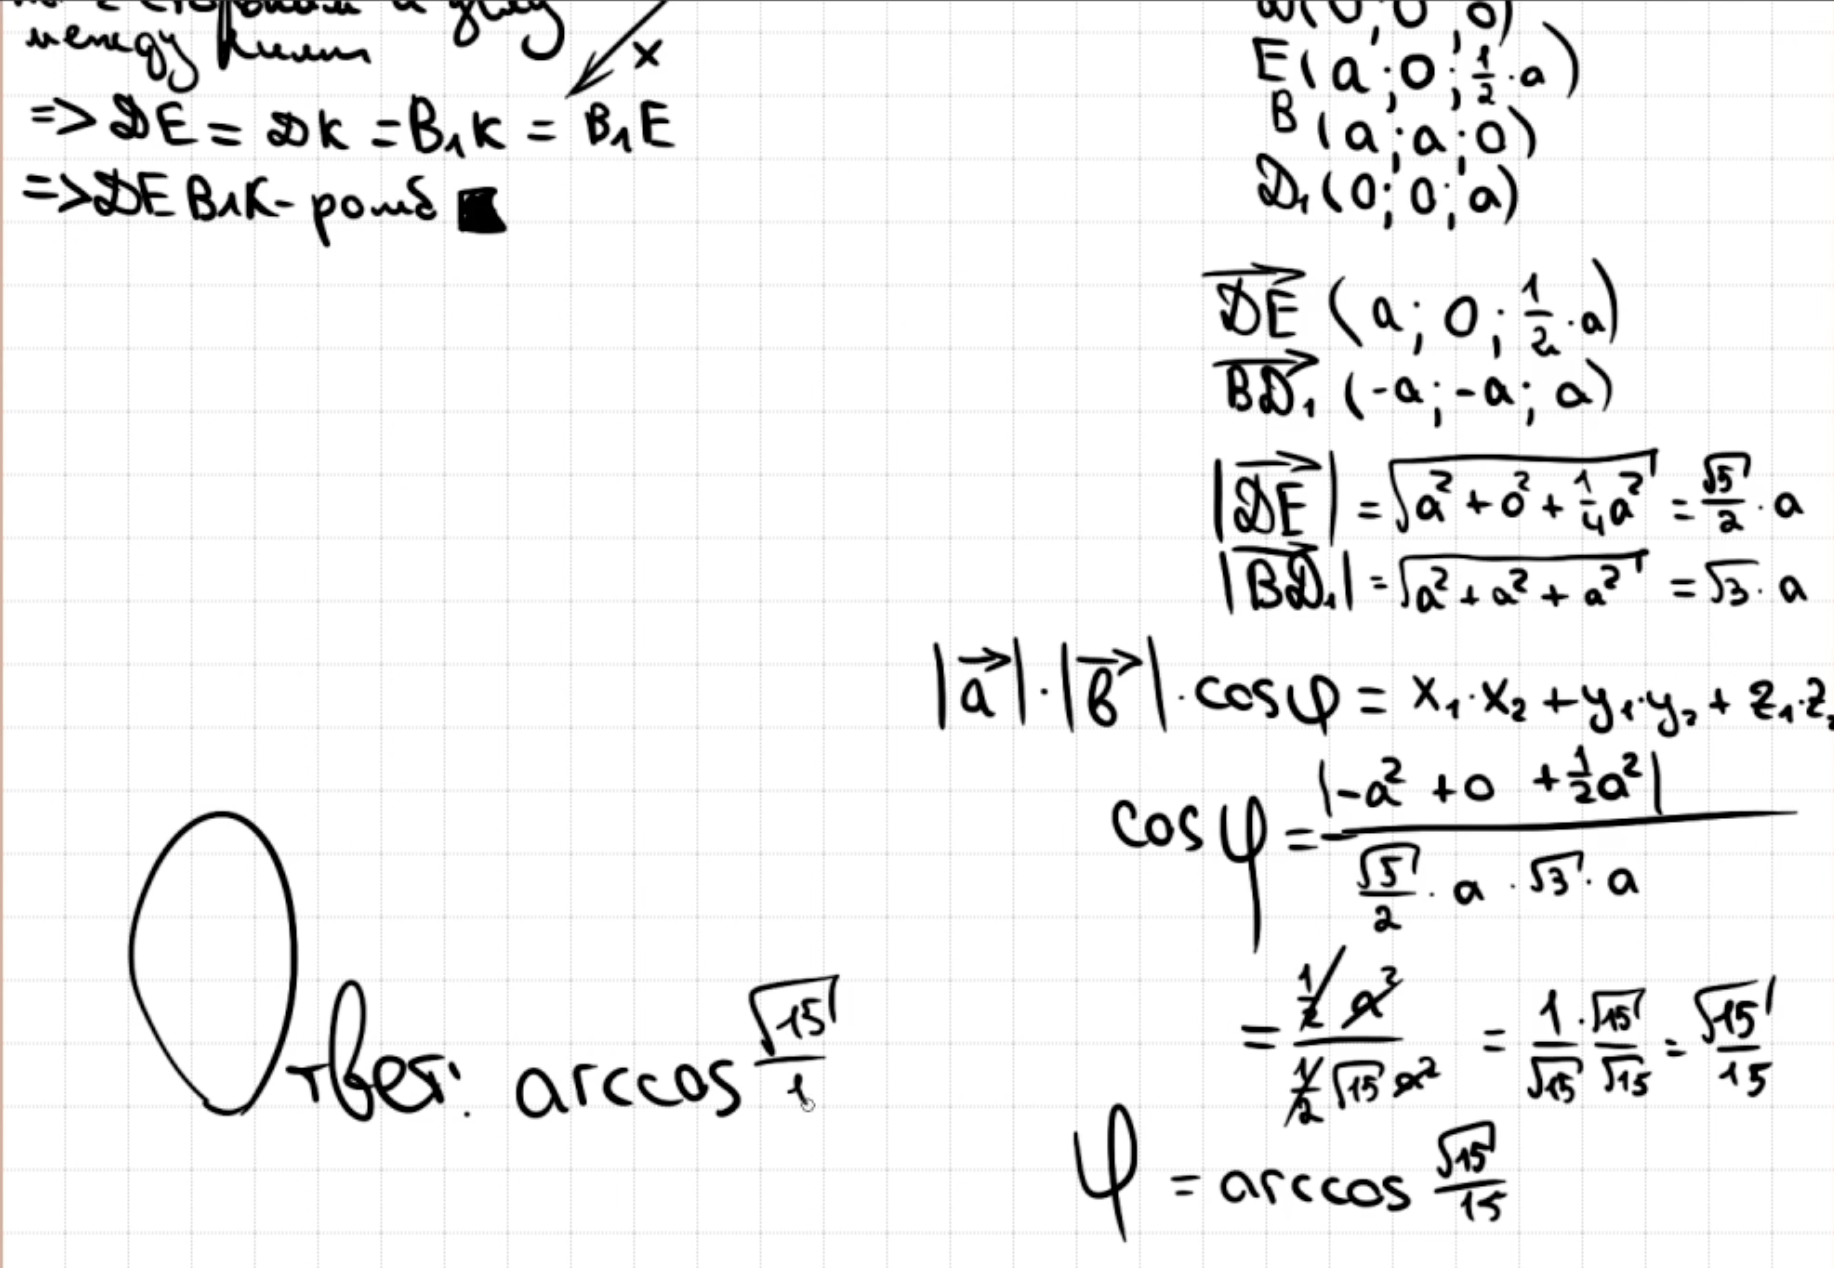 между ними
x
=> DE = DK = B₁K = B₁E
=> DEB₁K - ромб
D(0; 0; 0)
E(a; 0; 1/2 · a)
B(a; a; 0)
D₁(0; 0; a)
DE→ (a; 0; 1/2 · a)
BD₁→ (-a; -a; a)
|DE→| = √(a² + 0² + 1/4 a²) = √5/2 · a
|BD₁→| = √(a² + a² + a²) = √3 · a
|a→| · |b→| · cos φ = x₁·x₂ + y₁·y₂ + z₁·z₂
cos φ = |-a² + 0 + 1/2 a²| / (√5/2 · a · √3 · a)
= (1/2 a²) / (1/2 √15 a²) = 1/√15 · √15/√15 = √15/15
φ = arccos √15/15
Ответ: arccos √15/1